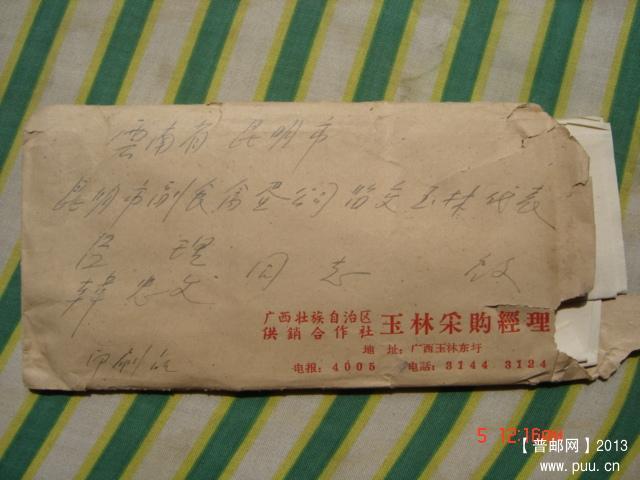 雲南省昆明市
昆明市副食禽蛋公司治交玉林代表
理
韓忠文 同志 收
广西壮族自治区
供銷合作社 玉林采购經理
地 址：广西玉林东圩
电报：4005 电話：3144 3124
印刷品
5 12:16PM
【普邮网】2013
www.puu.cn